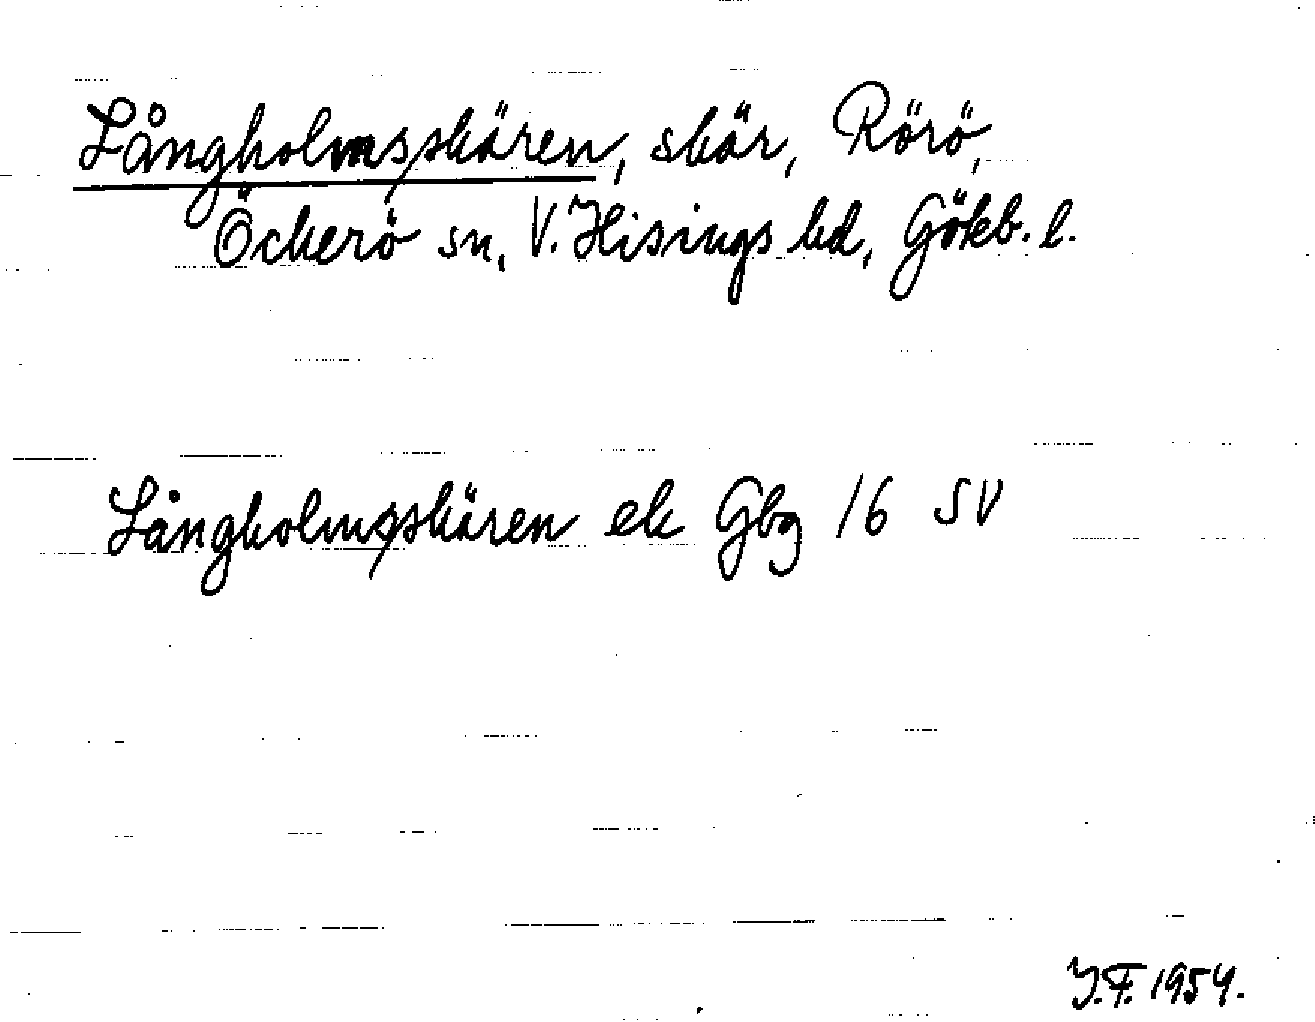 Långholmsskären, skär, Rörö,
Öckerö sn, V. Hisings hd, Göteb. l.
Långholmsskären ek Gbg 16 SV
J.F. 1954.